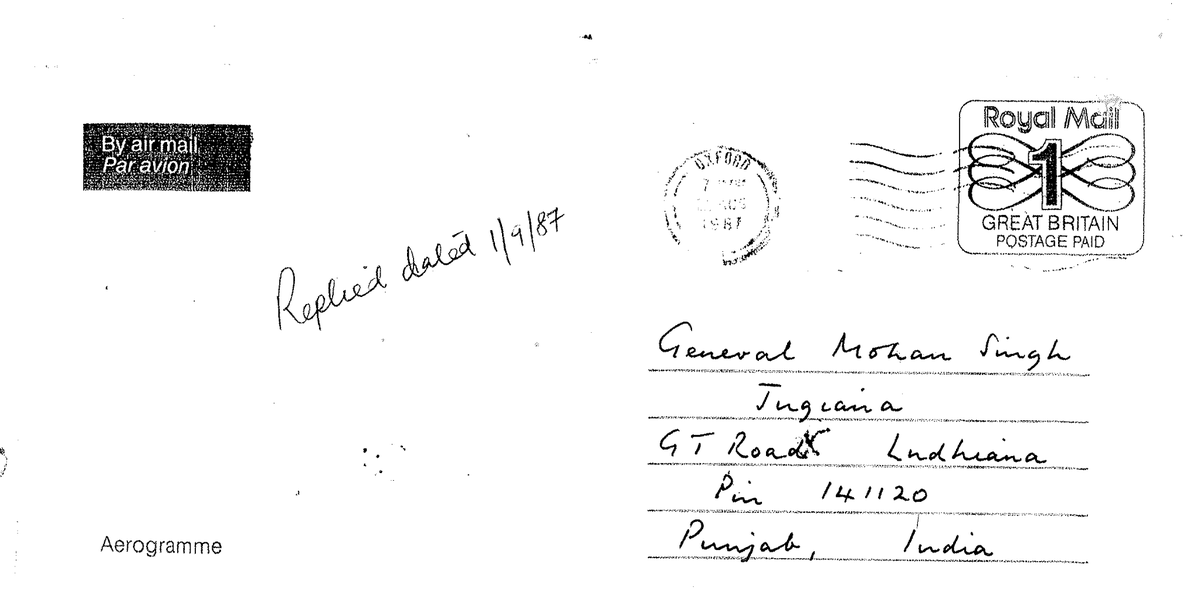 By air mail
Par avion
Replied dated 1/9/87
Aerogramme
OXFORD
AUG
1987
Royal Mail
1
GREAT BRITAIN
POSTAGE PAID
General Mohan Singh
Jugiana
GT Road Ludhiana
Pin 141120
Punjab, India